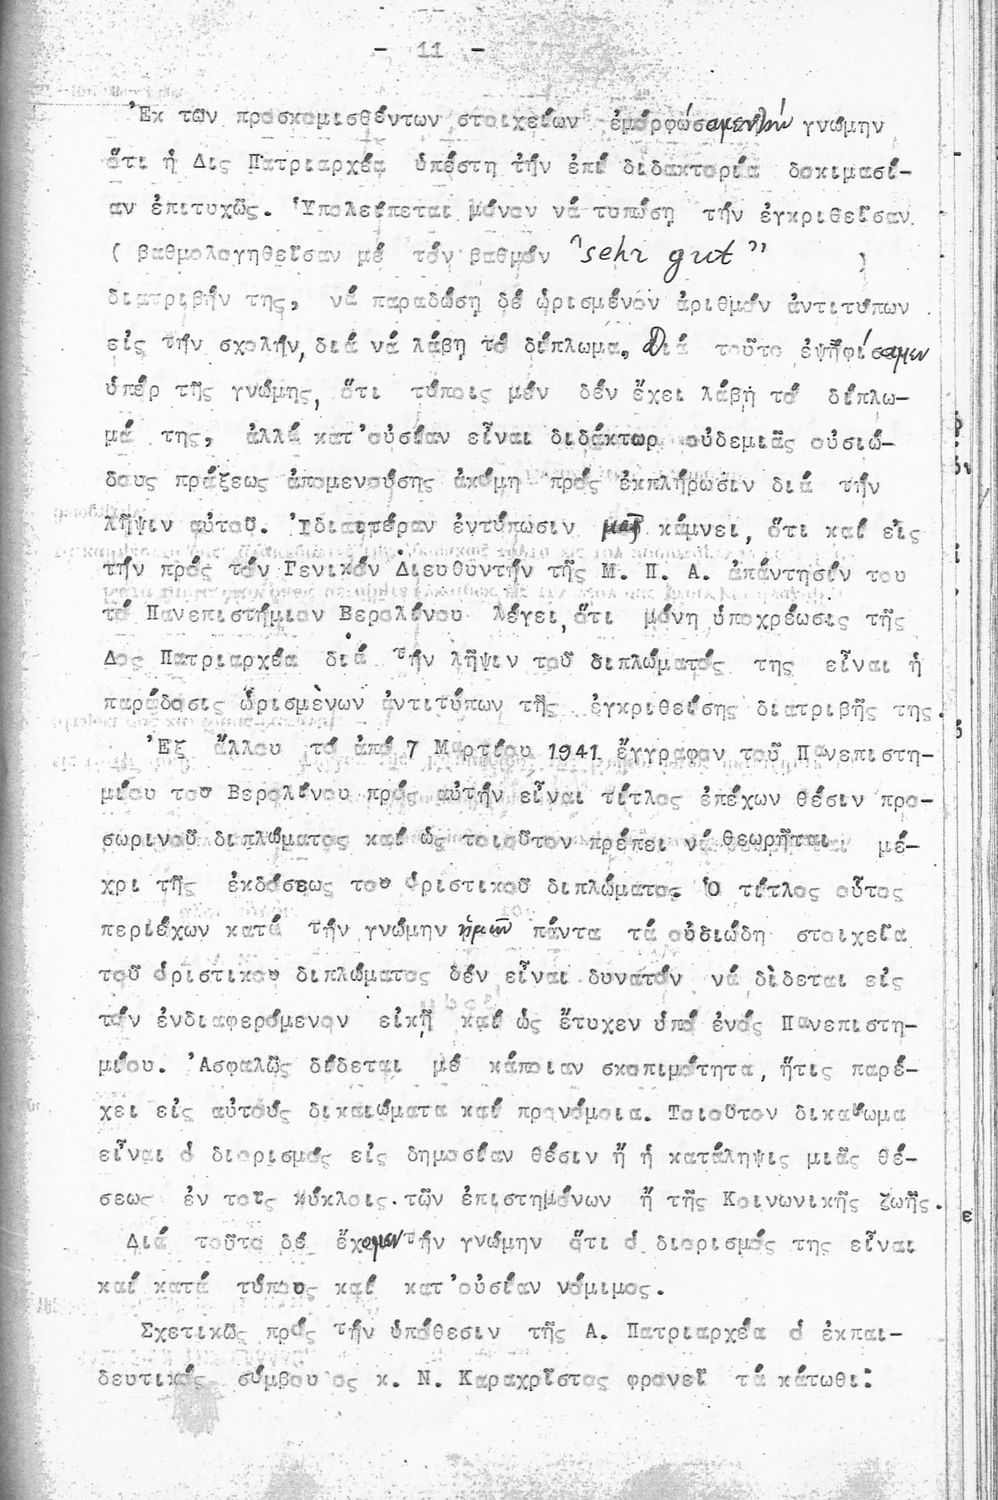 - 11 -
Ἐκ τῶν προσκομισθέντων στοιχείων ἐμορφώσαμεν τήν γνώμην
ὅτι ἡ Δις Πατριαρχέα ὑπέστη τήν ἐπί διδακτορία δοκιμασί-
αν ἐπιτυχῶς. Ὑπολείπεται μόνον νά τυπώση τήν ἐγκριθεῖσαν
( βαθμολογηθεῖσαν μέ τόν βαθμόν "sehr gut" )
διατριβήν της, νά παραδώση δέ ὡρισμένον ἀριθμόν ἀντιτύπων
εἰς τήν σχολήν, διά νά λάβη τό δίπλωμα. Διά τοῦτο ἐψηφίσαμεν
ὑπέρ τῆς γνώμης, ὅτι τύποις μέν δέν ἔχει λάβη τό δίπλω-
μά της, ἀλλά κατ'οὐσίαν εἶναι διδάκτωρ οὐδεμιᾶς οὐσιώ-
δους πράξεως ἀπομενούσης ἀκόμη πρός ἐκπλήρωσιν διά τήν
λῆψιν αὐτοῦ. Ἰδιαιτέραν ἐντύπωσιν μᾶς κάμνει, ὅτι καί εἰς
τήν πρός τόν Γενικόν Διευθυντήν τῆς Μ. Π. Α. ἀπάντησίν του
τό Πανεπιστήμιον Βερολίνου λέγει, ὅτι μόνη ὑποχρέωσις τῆς
Δος Πατριαρχέα διά τήν λῆψιν τοῦ διπλώματός της εἶναι ἡ
παράδοσις ὡρισμὲνων ἀντιτύπων τῆς ἐγκριθείσης διατριβῆς της.
Ἐξ ἄλλου τό ἀπό 7 Μαρτίου 1941 ἔγγραφον τοῦ Πανεπιστη-
μίου του Βερολίνου πρός αὐτήν εἶναι τίτλος ἐπέχων θέσιν προ-
σωρινοῦ διπλώματος καί ὡς τοιοῦτον πρέπει νά θεωρῆται μέ-
χρι τῆς ἐκδόσεως του ὁριστικοῦ διπλώματος. Ὁ τίτλος οὗτος
περιέχων κατά τήν γνώμην ἡμῶν πάντα τά οὐσιώδη στοιχεῖα
τοῦ ὁριστικου διπλώματος δέν εἶναι δυνατόν νά δὶδεται εἰς
τόν ἐνδιαφερόμενον εἰκῆ καί ὡς ἔτυχεν ὑπό ἑνός Πανεπιστη-
μίου. Ἀσφαλῶς δίδεται μέ κάποιαν σκοπιμότητα, ἥτις παρέ-
χει εἰς αὐτούς δικαιώματα καί προνόμοια. Τοιοῦτον δικαίωμα
εἶναι ὁ διορισμός εἰς δημοσίαν θέσιν ἤ ἡ κατάληψις μιᾶς θέ-
σεως ἐν τοῖς κύκλοις τῶν ἐπιστημόνων ἤ τῆς Κοινωνικῆς ζωῆς.
Διά τοῦτο δέ ἔχομεν τήν γνώμην ὅτι ὁ διορισμός της εἶναι
καί κατά τύπους καί κατ'οὐσίαν νόμιμος.
Σχετικῶς πρός τήν ὑπόθεσιν τῆς Α. Πατριαρχέα ὁ ἐκπαι-
δευτικός σύμβουλος κ. Ν. Καραχρῖστος φρονεῖ τά κάτωθι: